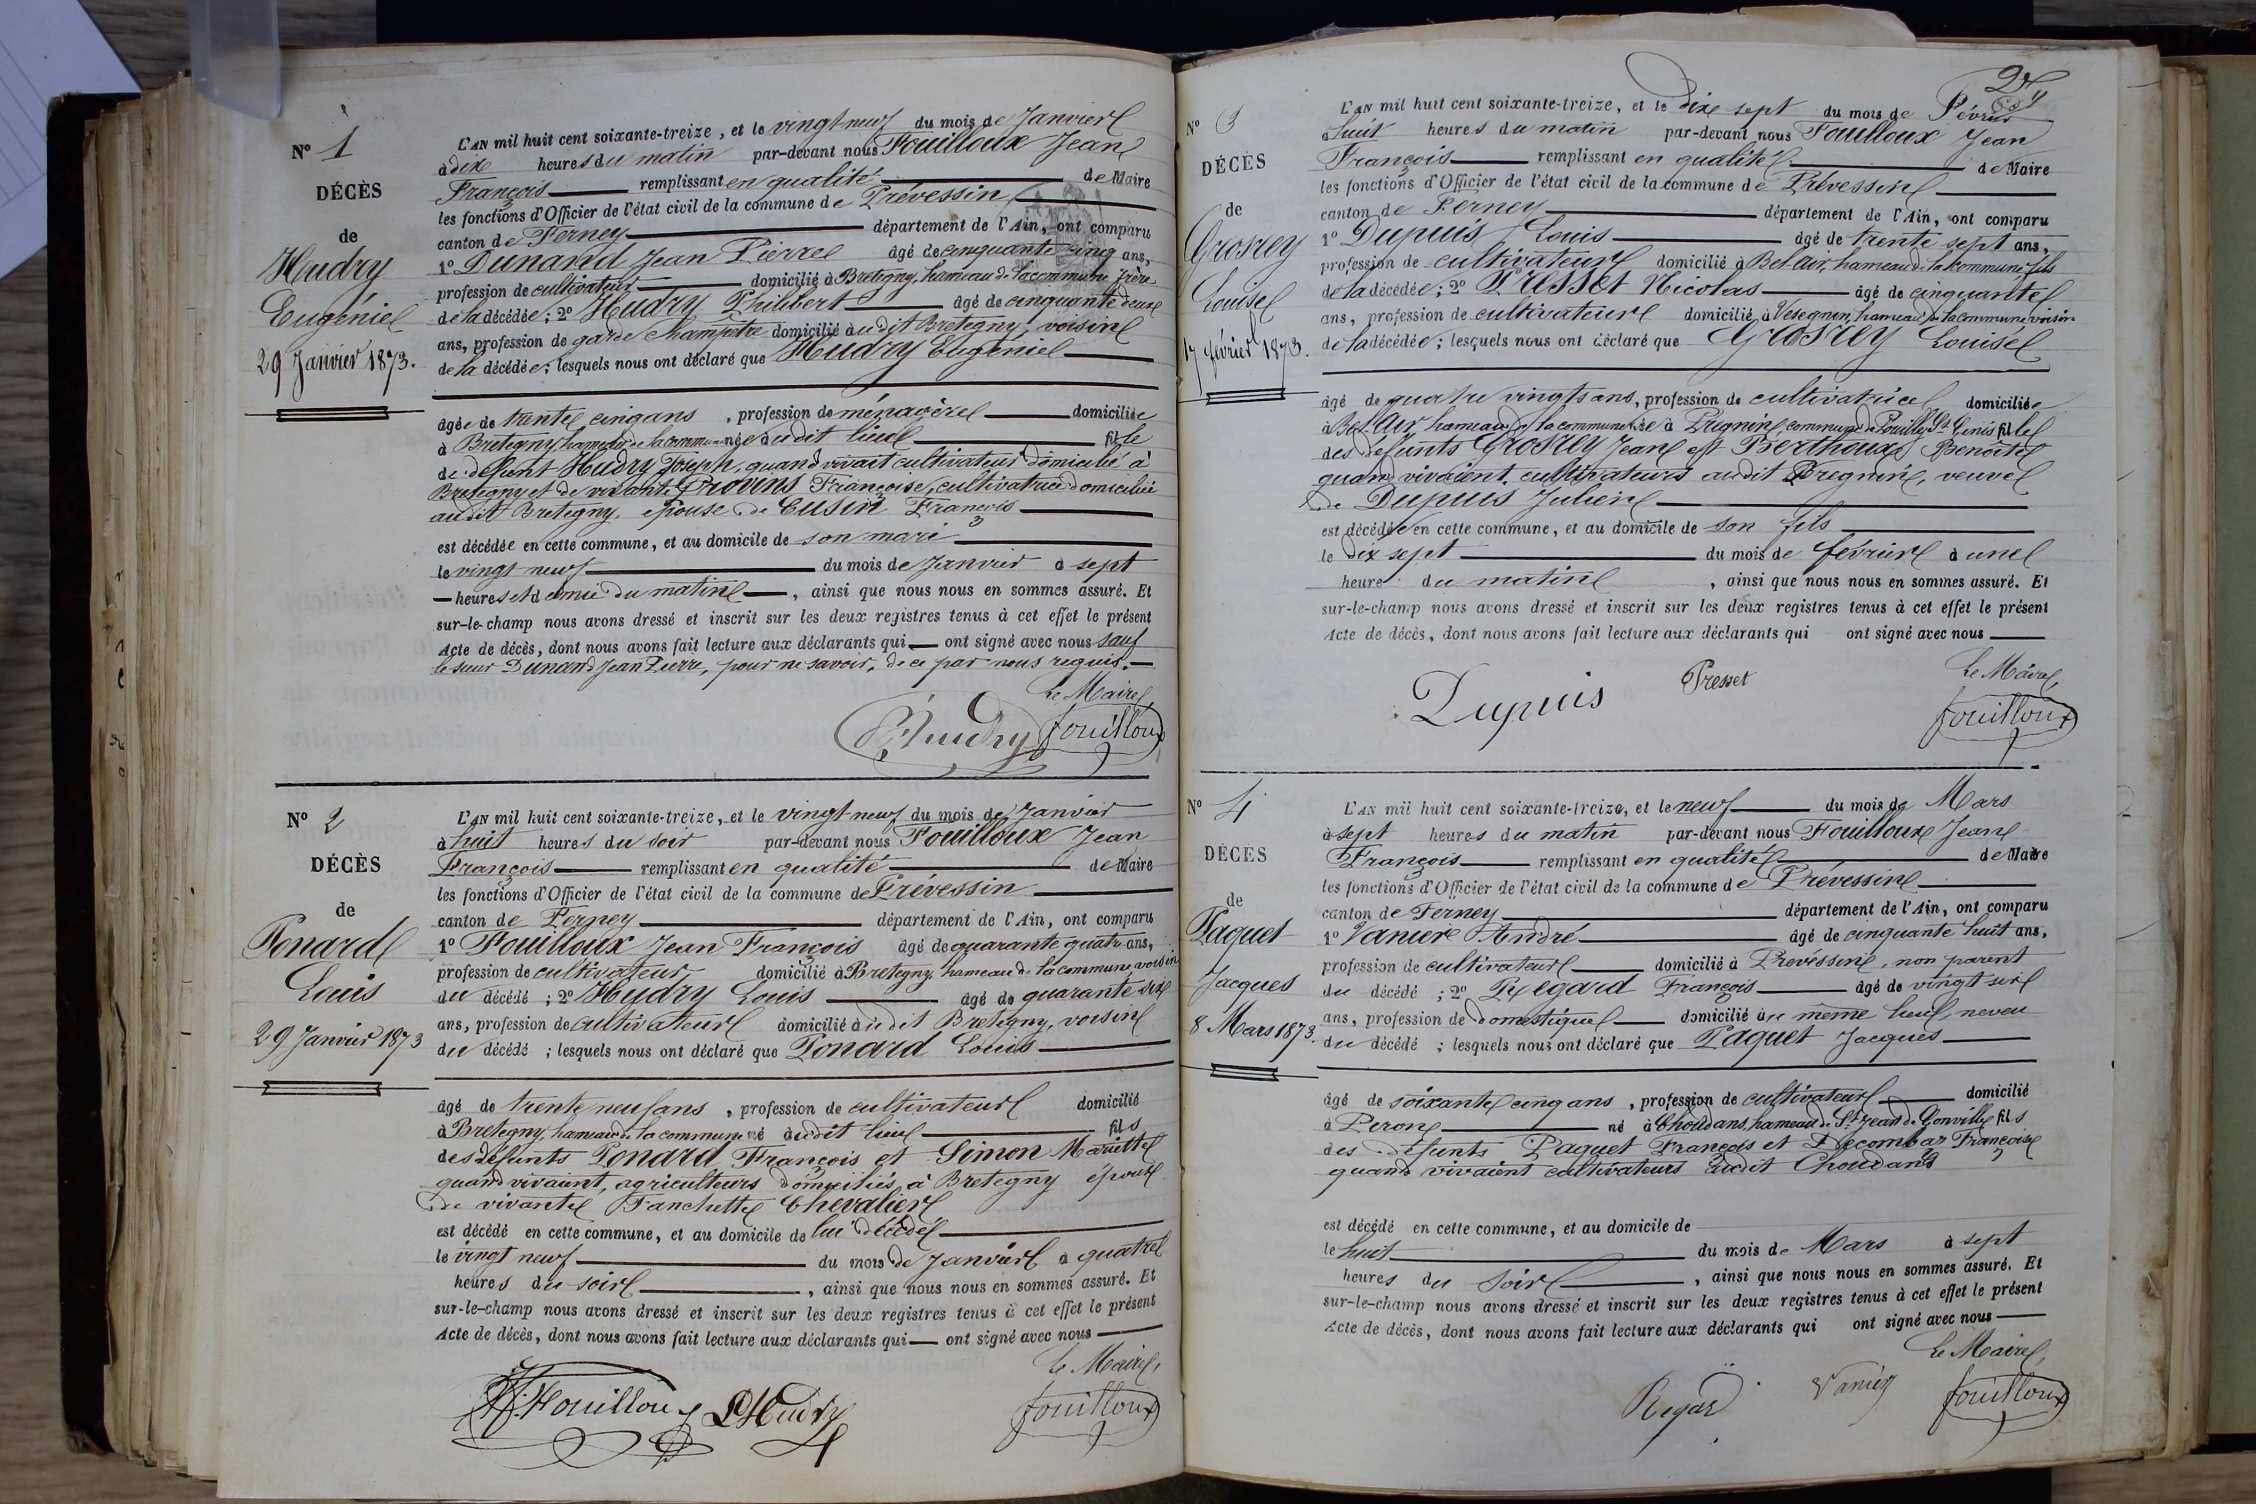 N° 1
DÉCÈS
de
Hudry
Eugénie
29 Janvier 1873.
L'AN mil huit cent soixante-treize, et le vingt neuf du mois de Janvier
à dix heures du matin par-devant nous Fouilloux Jean
François remplissant en qualité de Maire
les fonctions d'Officier de l'état civil de la commune de Prévessin
canton de Ferney département de l'Ain, ont comparu
1° Dunand Jean Pierre âgé de cinquante cinq ans,
profession de cultivateur domicilié à Bretegny, hameau de la commune frère
de la décédée; 2° Hudry Philibert âgé de cinquante deux
ans, profession de garde champêtre domicilié à udit Bretegny, voisin
de la décédée; lesquels nous ont déclaré que Hudry Eugénie
âgée de trente cinq ans, profession de ménagère domiciliée
à Bretegny hameau de la commune née audit lieu fille
de défunt Hudry Joseph, quand vivait cultivateur domicilié à
Bretegny et de vivante Provens Françoise, cultivatrice domiciliée
audit Bretegny, épouse de Cusin François
est décédée en cette commune, et au domicile de son mari
le vingt neuf du mois de Janvier à sept
heures et demie du matin, ainsi que nous nous en sommes assuré. Et
sur-le-champ nous avons dressé et inscrit sur les deux registres tenus à cet effet le présent
Acte de décès, dont nous avons fait lecture aux déclarants qui ont signé avec nous sauf
le sieur Dunand Jean Pierre, pour ne savoir, de ce par nous requis.
Le Maire,
Hudry Fouilloux
N° 2
DÉCÈS
de
Ponard
Louis
29 Janvier 1873
L'AN mil huit cent soixante-treize, et le vingt neuf du mois de Janvier
à huit heures du soir par-devant nous Fouilloux Jean
François remplissant en qualité de Maire
les fonctions d'Officier de l'état civil de la commune de Prévessin
canton de Ferney département de l'Ain, ont comparu
1° Fouilloux Jean François âgé de quarante quatre ans,
profession de cultivateur domicilié à Bretegny hameau de la commune, voisin
du décédé; 2° Hudry Louis âgé de quarante six
ans, profession de cultivateur domicilié à udit Bretegny, voisin
du décédé; lesquels nous ont déclaré que Ponard Louis
âgé de trente neuf ans, profession de cultivateur domicilié
à Bretegny, hameau de la commune né audit lieu fils
des défunts Ponard François et Simon Mariette
quand vivaient, agriculteurs domiciliés, à Bretegny époux
de vivante Fanchette Chevalier
est décédé en cette commune, et au domicile de lui décédé
le vingt neuf du mois de Janvier à quatre
heures du soir, ainsi que nous nous en sommes assuré. Et
sur-le-champ nous avons dressé et inscrit sur les deux registres tenus à cet effet le présent
Acte de décès, dont nous avons fait lecture aux déclarants qui ont signé avec nous
Le Maire,
Fouilloux L Hudry Fouilloux
N° 3
DÉCÈS
de
Grosrey
Louise
17 février 1873.
L'AN mil huit cent soixante-treize, et le dix sept du mois de Février
à huit heures du matin par-devant nous Fouilloux Jean
François remplissant en qualité de Maire
les fonctions d'Officier de l'état civil de la commune de Prévessin
canton de Ferney département de l'Ain, ont comparu
1° Dupuis Louis âgé de trente sept ans,
profession de cultivateur domicilié à Bel-Air, hameau de la commune fils
de la décédée; 2° Presset Nicolas âgé de cinquante
ans, profession de cultivateur domicilié à Vesegnin, hameau de la commune voisin
de la décédée; lesquels nous ont déclaré que Grosrey Louise
âgé de quatre vingts ans, profession de cultivatrice domiciliée
à Bel-Air, hameau de la commune née à Pregnin, commune de Pouilly St Genis fille
des défunts Grosrey Jean et Berthoux Benoîte
quand vivaient, cultivateurs audit Pregnin, veuve
de Dupuis Julien
est décédée en cette commune, et au domicile de son fils
le dix sept du mois de février à une
heure du matin, ainsi que nous nous en sommes assuré. Et
sur-le-champ nous avons dressé et inscrit sur les deux registres tenus à cet effet le présent
Acte de décès, dont nous avons fait lecture aux déclarants qui ont signé avec nous
Le Maire,
Dupuis Presset Fouilloux
N° 4
DÉCÈS
de
Paquet
Jacques
8 Mars 1873.
L'AN mil huit cent soixante-treize, et le neuf du mois de Mars
à sept heures du matin par-devant nous Fouilloux Jean
François remplissant en qualité de Maire
les fonctions d'Officier de l'état civil de la commune de Prévessin
canton de Ferney département de l'Ain, ont comparu
1° Vanier André âgé de cinquante huit ans,
profession de cultivateur domicilié à Prévessin, non parent
du décédé; 2° Regard François âgé de vingt six
ans, profession de domestique domicilié au même lieu, neveu
du décédé; lesquels nous ont déclaré que Paquet Jacques
âgé de soixante cinq ans, profession de cultivateur domicilié
à Peron né à Choudans, hameau de St Jean de Gonville fils
des défunts Paquet François et Decombaz Françoise
quand vivaient cultivateurs audit Choudans
est décédé en cette commune, et au domicile de
le huit du mois de Mars à sept
heures du soir, ainsi que nous nous en sommes assuré. Et
sur-le-champ nous avons dressé et inscrit sur les deux registres tenus à cet effet le présent
Acte de décès, dont nous avons fait lecture aux déclarants qui ont signé avec nous
Le Maire,
Regard Vanier Fouilloux